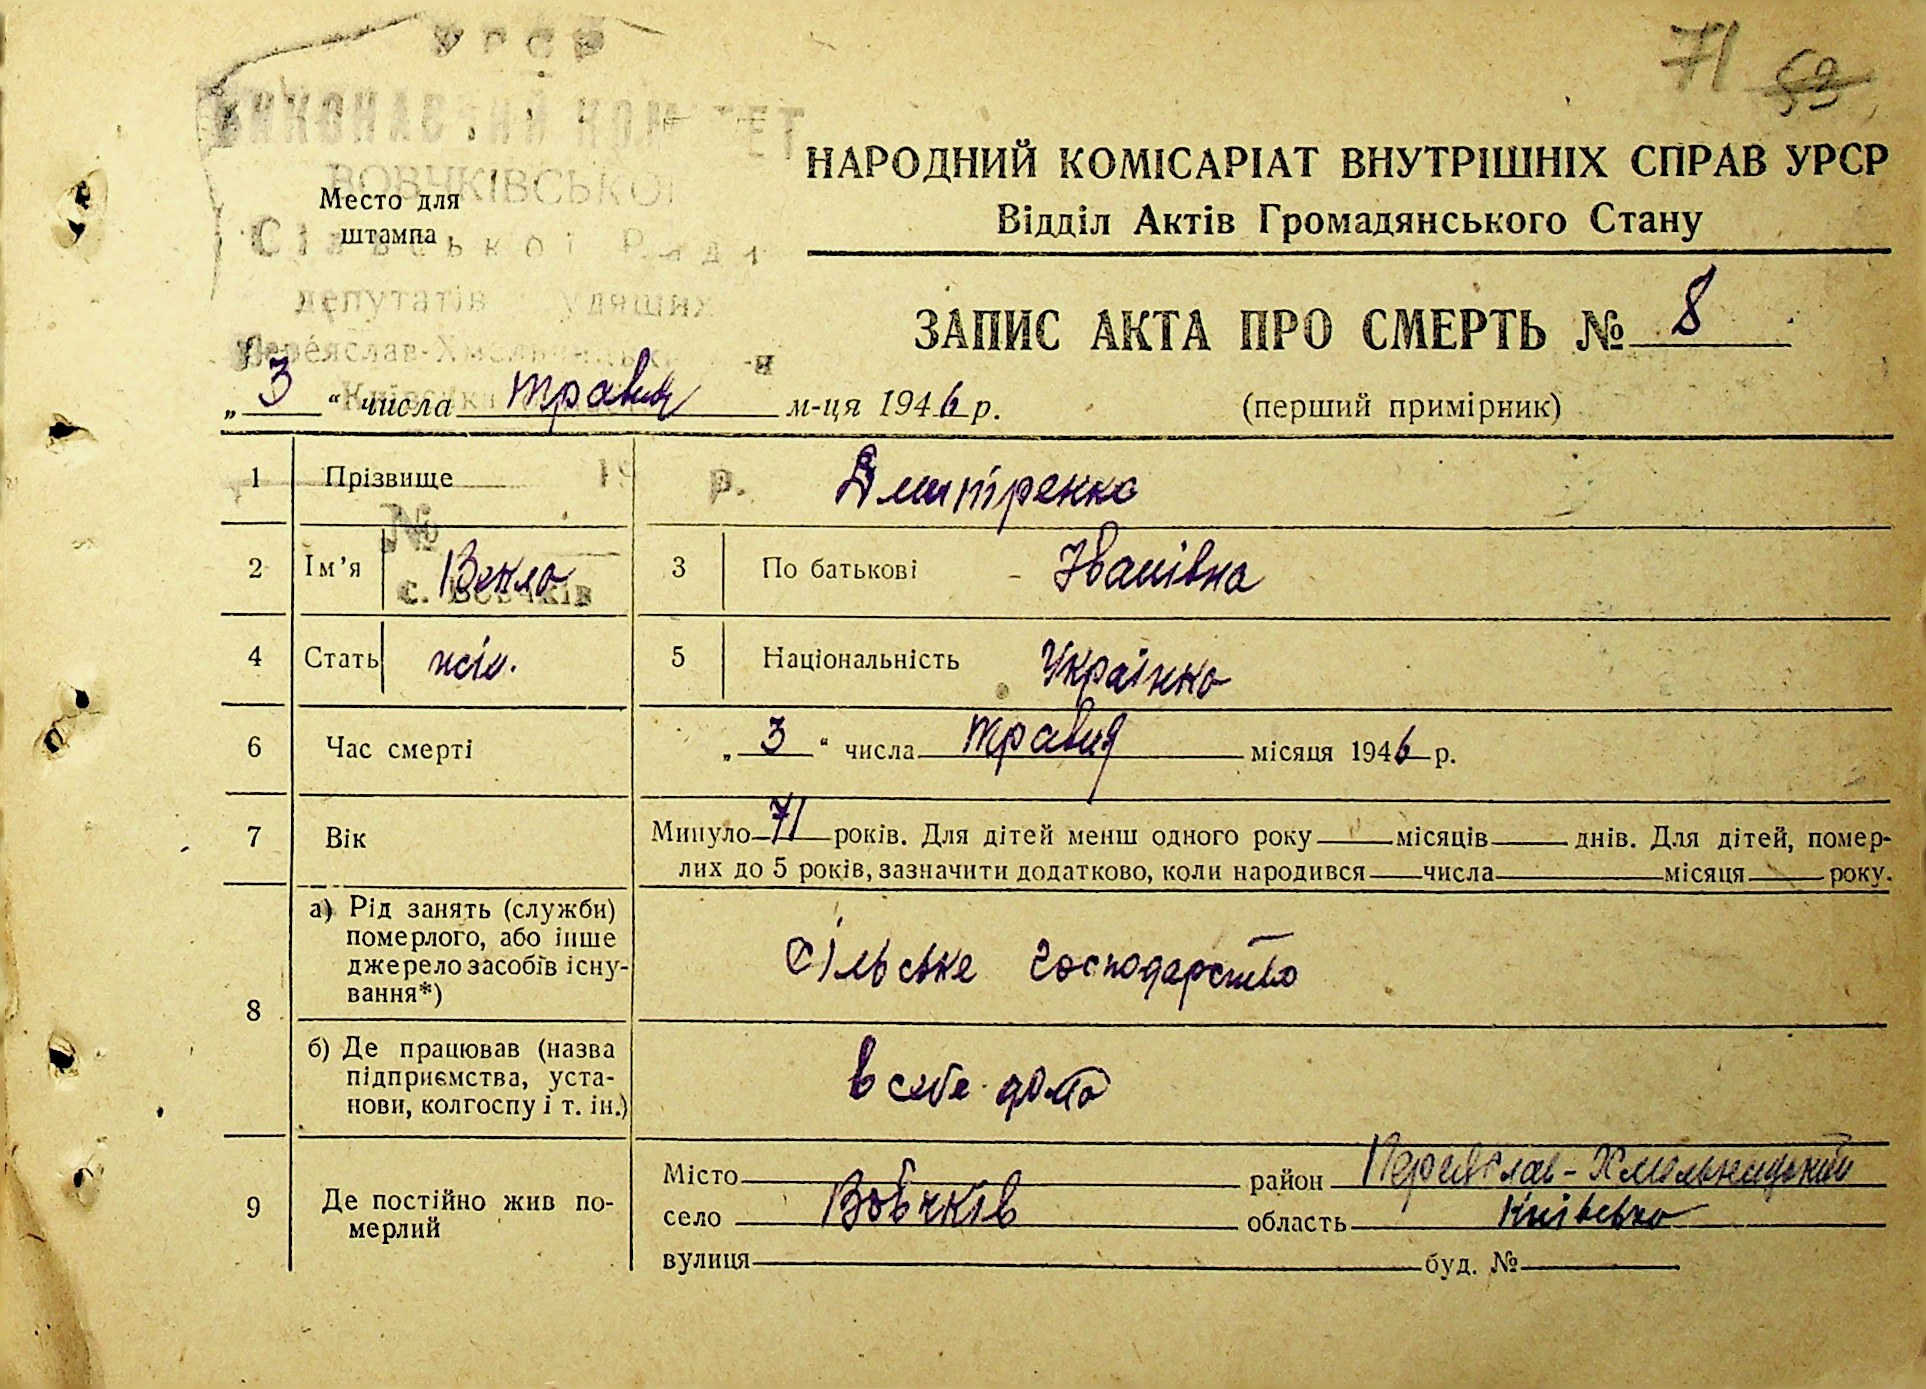 71 53
УРСР
ВИКОНАВЧИЙ КОМІТЕТ
ВОВЧКІВСЬКОЇ
Сільської Ради
депутатів трудящих
Переяслав-Хмельницьк р-н
Київськ
Место для
штампа
НАРОДНИЙ КОМІСАРІАТ ВНУТРІШНІХ СПРАВ УРСР
Відділ Актів Громадянського Стану
ЗАПИС АКТА ПРО СМЕРТЬ № 8
„ 3 “ числа травня м-ця 1946 р.
(перший примірник)
19 р.
№
с. Вовчків
1 Прізвище Дмитренко
2 Ім’я Векла 3 По батькові – Іванівна
4 Стать жін. 5 Національність Українка
6 Час смерті „ 3 “ числа травня місяця 1946 р.
7 Вік Минуло 71 років. Для дітей менш одного року місяців днів. Для дітей, помер-
лих до 5 років, зазначити додатково, коли народився числа місяця року.
8 а) Рід занять (служби)
померлого, або інше
джерело засобів існу-
вання*)
Сільське господарство
б) Де працював (назва
підприємства, уста-
нови, колгоспу і т. ін.)
в себе дома
9 Де постійно жив по-
мерлий
Місто район Переяслав-Хмельницький
село Вовчків область Київська
вулиця буд. №